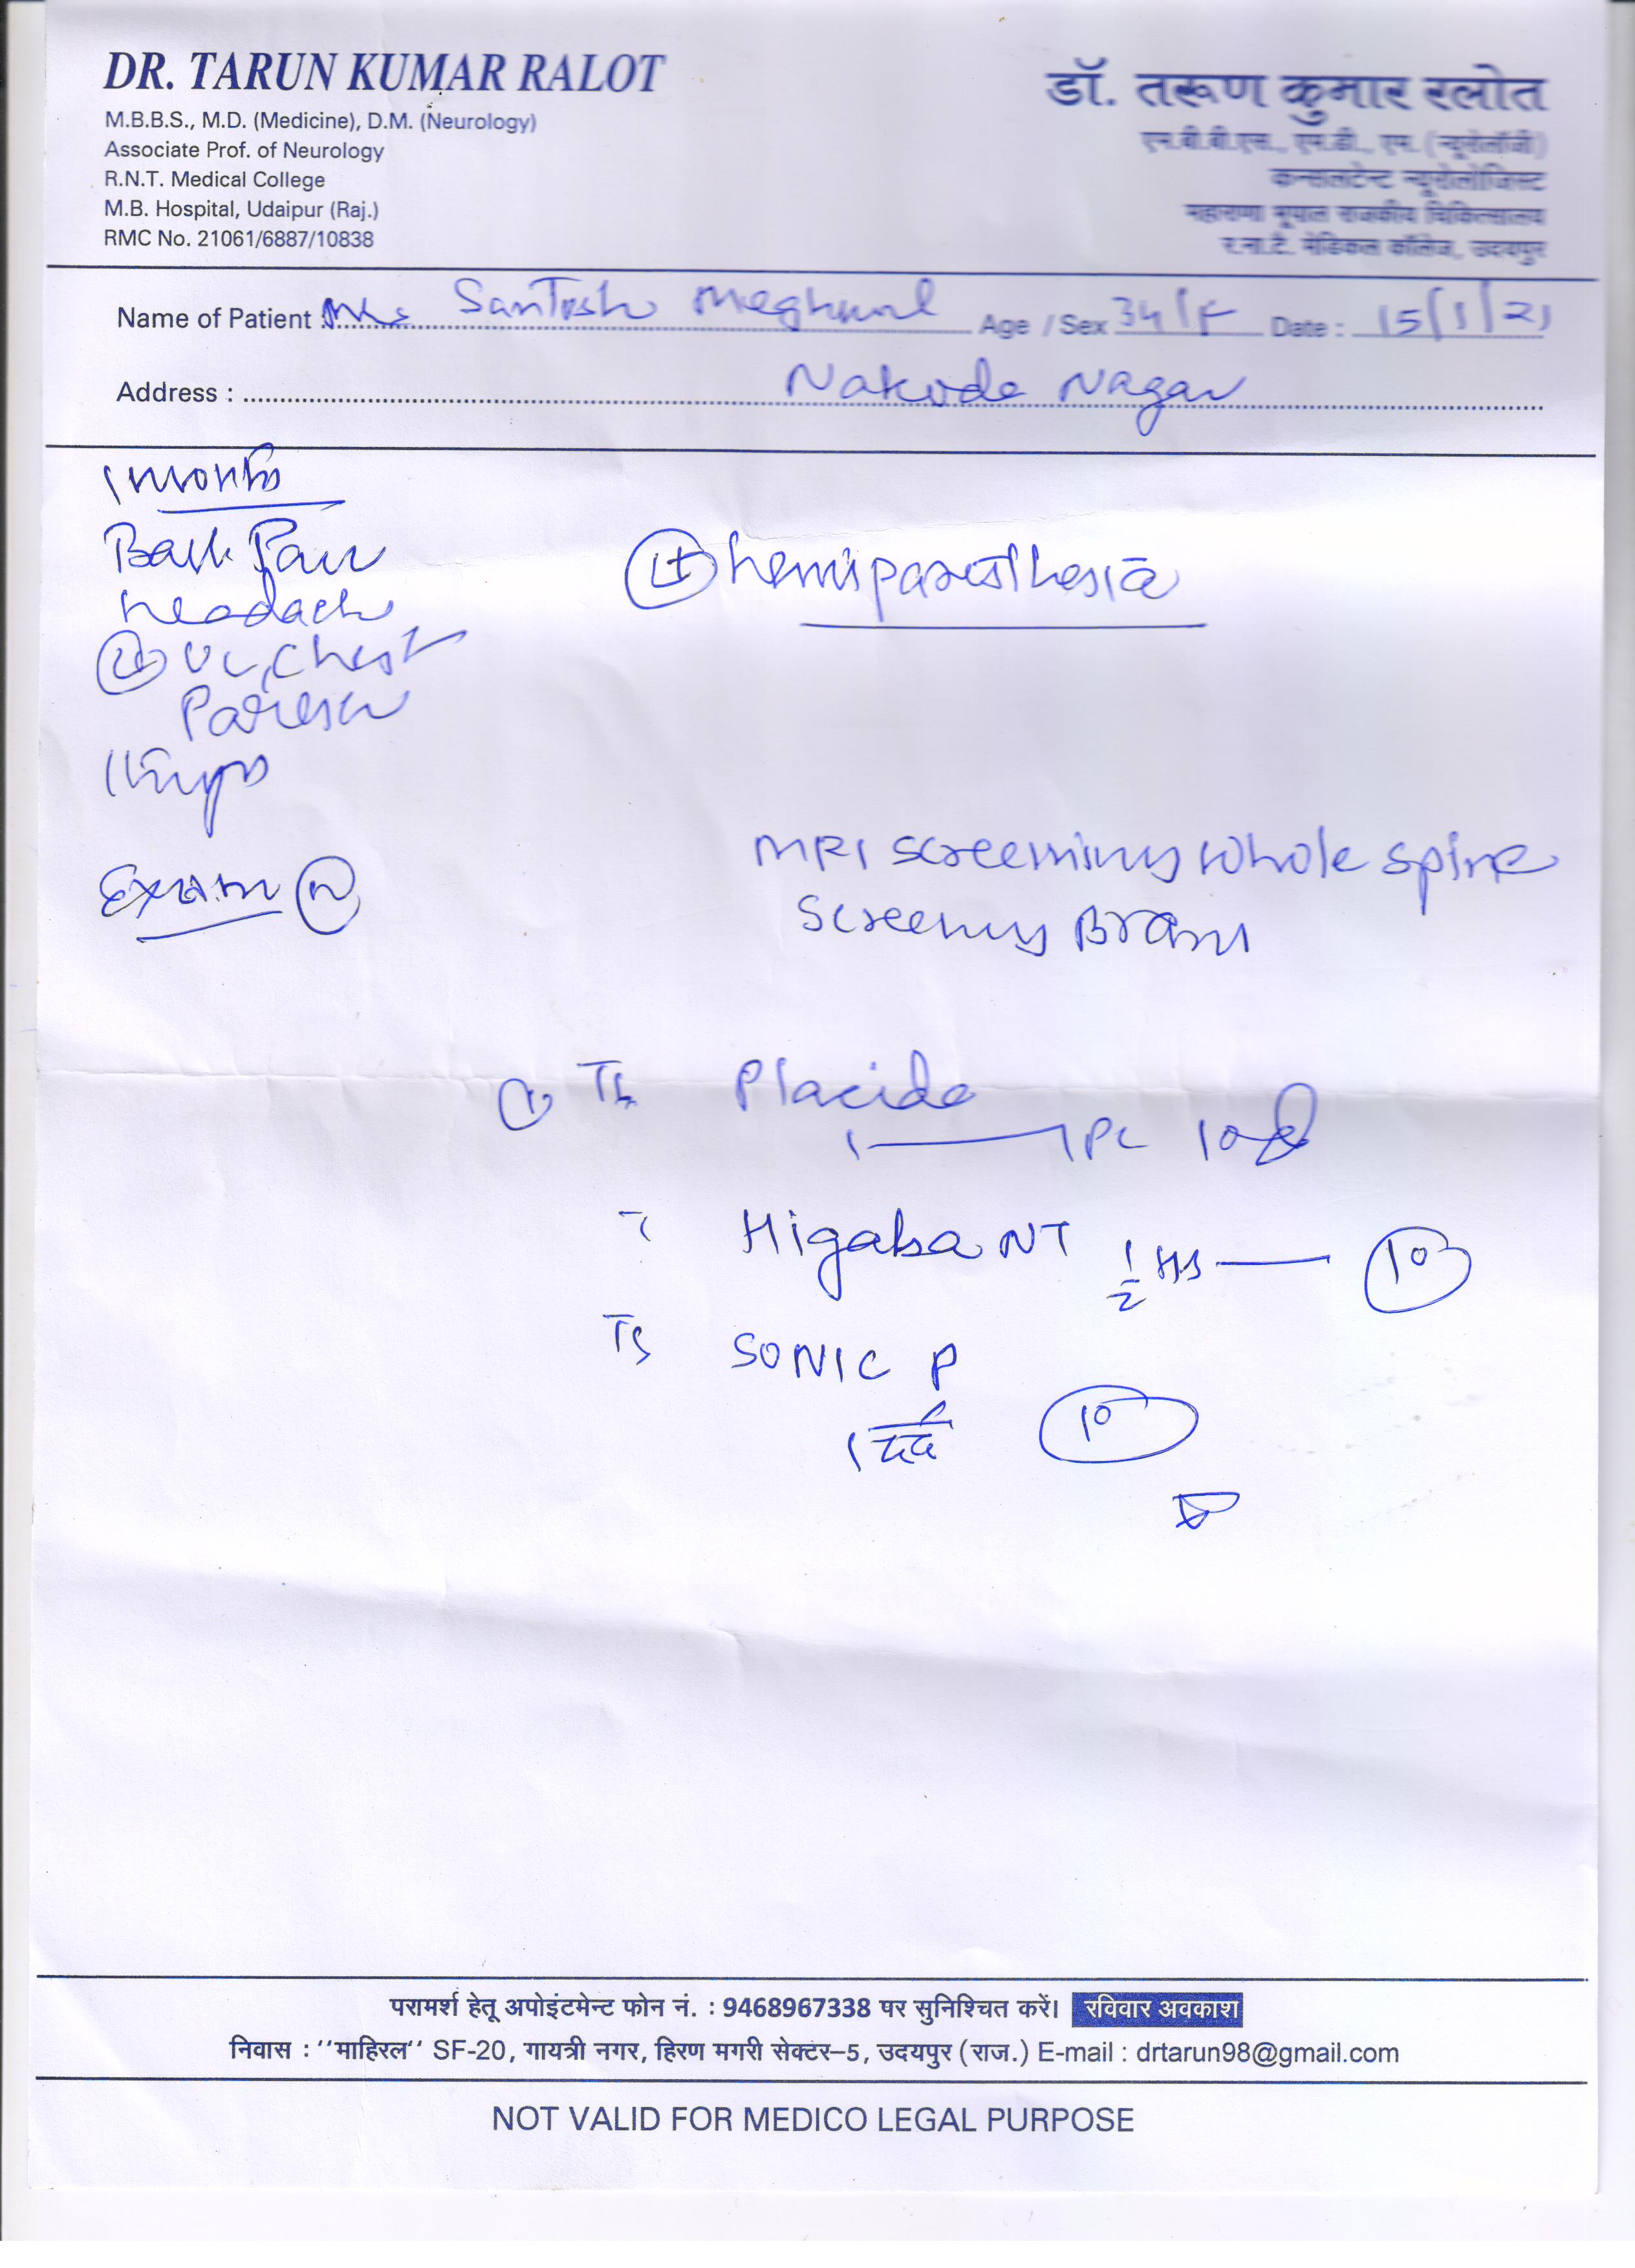 DR. TARUN KUMAR RALOT
M.B.B.S., M.D. (Medicine), D.M. (Neurology)
Associate Prof. of Neurology
R.N.T. Medical College
M.B. Hospital, Udaipur (Raj.)
RMC No. 21061/6887/10838
डॉ. तरूण कुमार रलोत
एम.बी.बी.एस., एम.डी., एम. (न्यूरोलॉजी)
कन्सलटेन्ट न्यूरोलोजिस्ट
महाराणा भूपाल राजकीय चिकित्सालय
र.ना.टै. मेडिकल कॉलेज, उदयपुर
Name of Patient : Mrs Santosh Meghwal Age / Sex 34/F Date : 15/1/21
Address : Nakoda Nagar
1 month
Back Pain
headach
Lt UL, Chest
Paresth
Lt hemiparesthesia
Exam N
MRI screening whole spine
Screening Brain
Placida
1 1 PC 10d
Higaba NT 1/2 HS 10
SONIC P
1 दर्द 10
परामर्श हेतू अपोइंटमेन्ट फोन नं. : 9468967338 पर सुनिश्चित करें। रविवार अवकाश
निवास : ''माहिरल'' SF-20, गायत्री नगर, हिरण मगरी सेक्टर–5, उदयपुर (राज.) E-mail : drtarun98@gmail.com
NOT VALID FOR MEDICO LEGAL PURPOSE